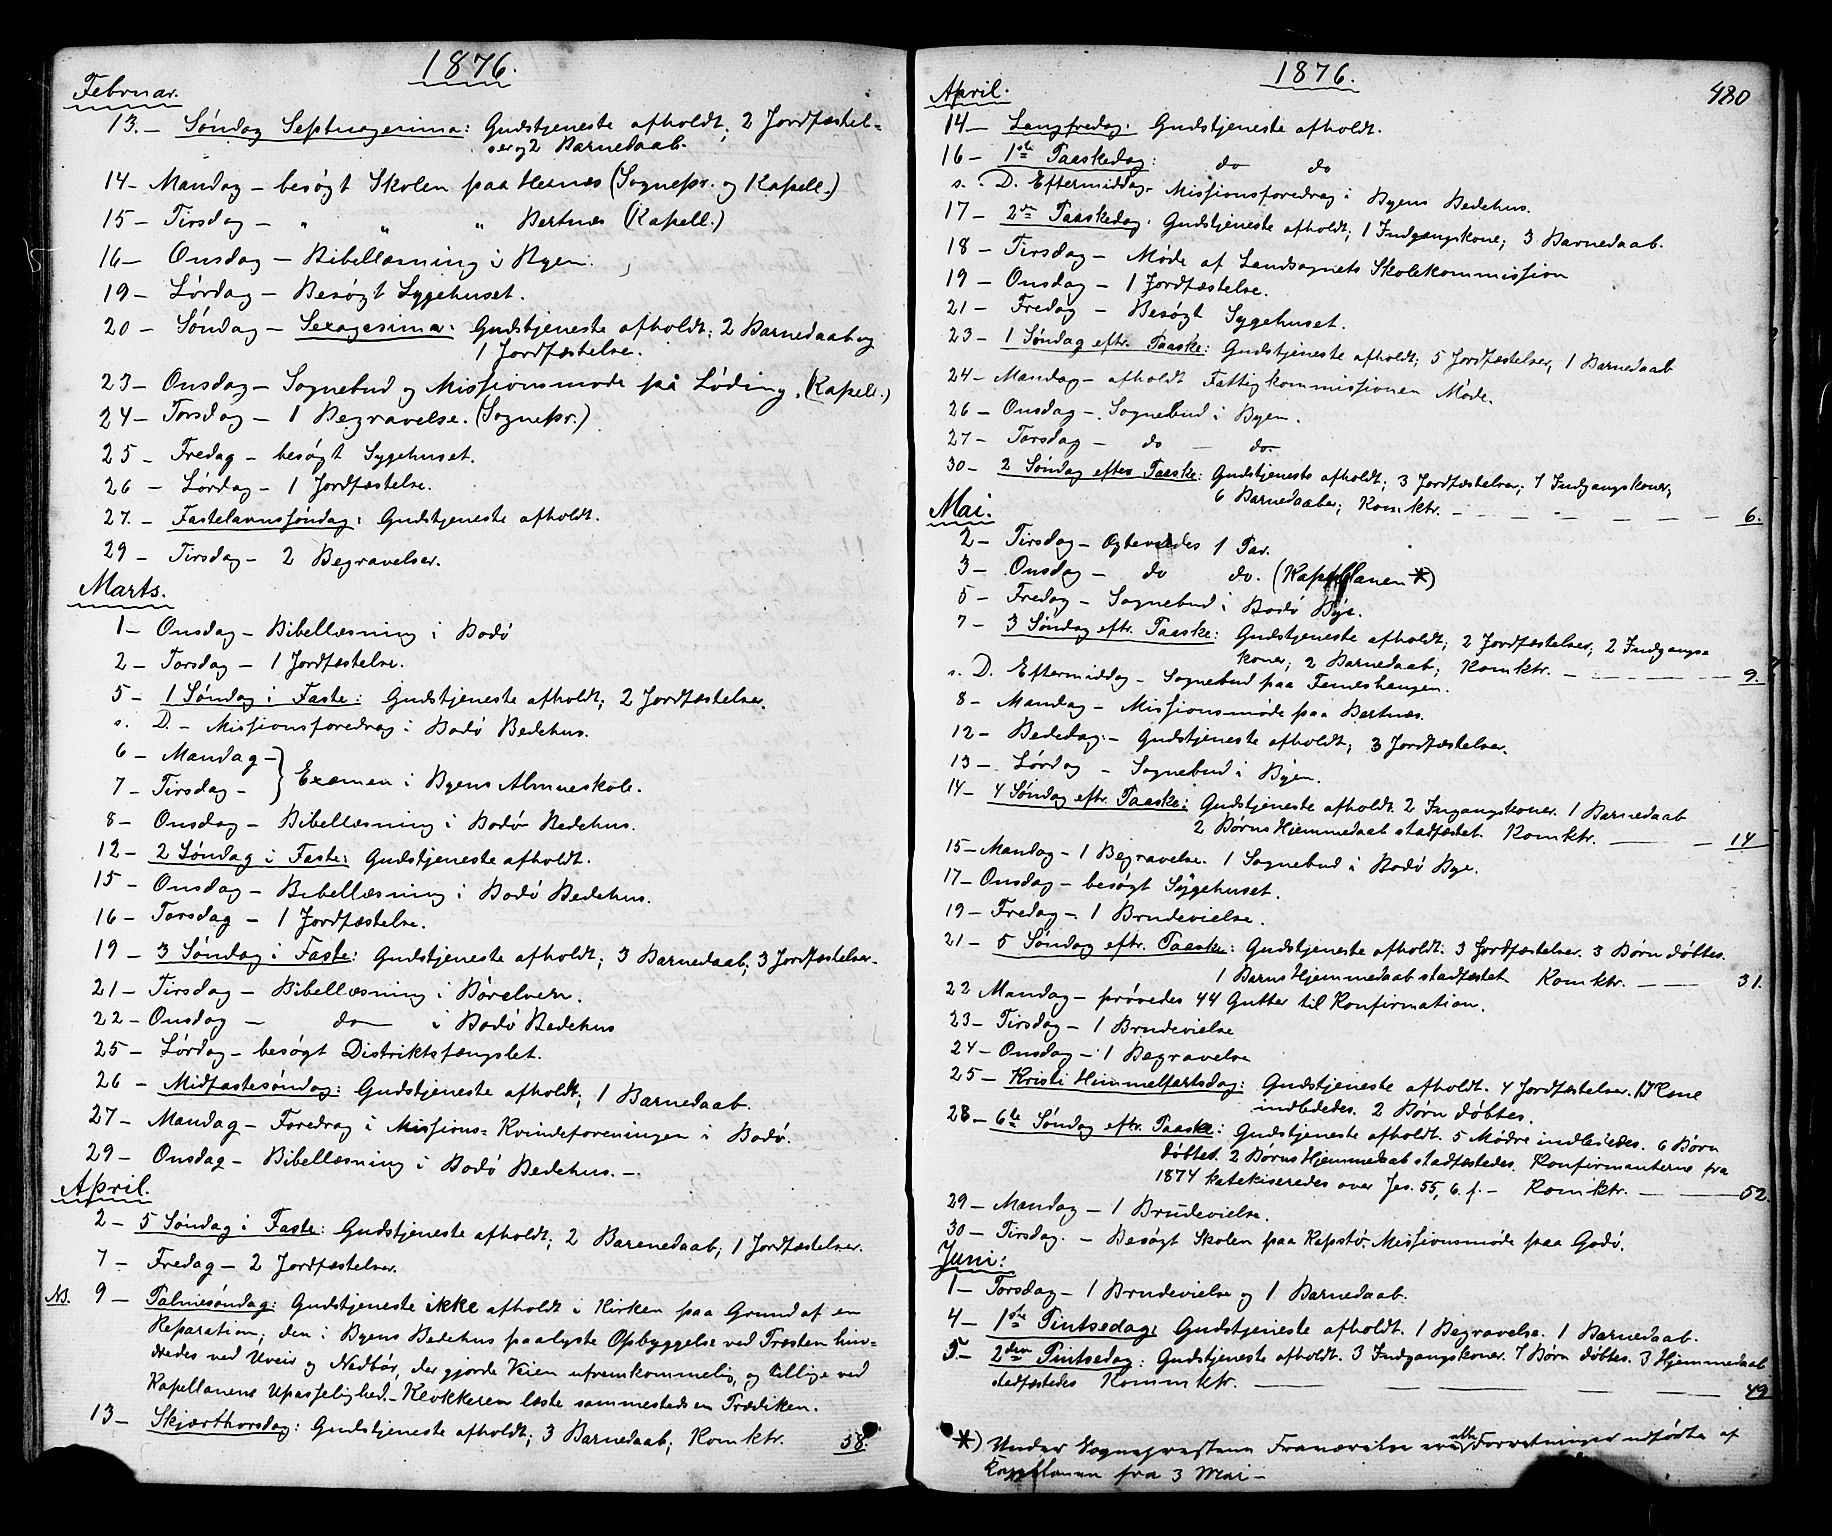 1876.
Februar.
13.- Søndag Septuagesima: Gudstjeneste afholdt; 2 Jordfæstel=
ser og 2 Barnedaab.
14- Mandag - besøgt Skolen paa Hernes (Sognepr. og Kapell.)
15- Tirsdag - " " " Bertnes (Kapell.)
16- Onsdag - Bibellæsning i Byen.
19- Lørdag - Besøgt Sygehuset.
20- Søndag - Sexagesima: Gudstjeneste afholdt; 2 Barnedaab og
1 Jordfæstelse.
23- Onsdag - Sognebud og Missionsmøde på Løding. (Kapell.)
24- Torsdag - 1 Begravelse. (Sognepr.)
25- Fredag - besøgt Sygehuset.
26- Lørdag - 1 Jordfæstelse.
27.- Fastelavnssøndag: Gudstjeneste afholdt.
29- Tirsdag - 2 Begravelser.
Marts.
1- Onsdag - Bibellæsning i Bodø
2- Torsdag - 1 Jordfæstelse.
5- 1 Søndag i Faste: Gudstjeneste afholdt; 2 Jordfæstelser.
s. D. - Missionsforedrag i Bodø Bedehus.
6- Mandag -
7- Tirsdag - } Examen i Byens Almueskole.
8- Onsdag - Bibellæsning i Bodø Bedehus.
12- 2 Søndag i Faste: Gudstjeneste afholdt.
15- Onsdag - Bibellæsning i Bodø Bedehus.
16- Torsdag - 1 Jordfæstelse.
19- 3 Søndag i Faste: Gudstjeneste afholdt; 3 Barnedaab; 3 Jordfæstelser.
21- Tirsdag - Bibellæsning i Børelven.
22- Onsdag - do - i Bodø Bedehus
25- Lørdag - besøgt Distriktsfængslet.
26- Midfastesøndag: Gudstjeneste afholdt; 1 Barnedaab.
27- Mandag - Foredrag i Missions=Kvindeforeningen i Bodø.
29- Onsdag - Bibellæsning i Bodø Bedehus.-
April.
2- 5 Søndag i Faste: Gudstjeneste afholdt; 2 Barenedaab; 1 Jordfæstelser.
7- Fredag - 2 Jordfæstelser.
NB. 9- Palmesøndag: Gudstjeneste ikke afholdt i Kirken paa Grund af en
Reparation; den i Byens Bedehus paalyste Opbyggelse ved Præsten hin=
dredes ved Uveir og Nedbør, der gjorde Veien ufremkommelig, og tillige ved
Kapellanens Upasselighed. - Klokkeren læste sammesteds en Prædiken.
13- Skjærthorsdag: Gudstjeneste afholdt; 3 Barnedaab; Komktr. 58.
1876.
480
April.
14- Langfredag: Gudstjeneste afholdt.
16- 1ste Paaskedag: do do
s. D. Eftermiddag - Missionsforedrag i Byens Bedehus.
17- 2den Paaskedag: Gudstjeneste afholdt; 1 Indgangskone; 3 Barnedaab.
18- Tirsdag - Møde af Landsognets Skolekommission
19- Onsdag - 1 Jordfæstelse.
21- Fredag - Besøgt Sygehuset.
23- 1 Søndag eftr. Paaske: Gudstjeneste afholdt; 5 Jordfæstelser, 1 Barnedaab
24- Mandag - afholdt Fattigkommissionen Møde.
26- Onsdag - Sognebud i Byen.
27- Torsdag - do - do.
30- 2 Søndag efter Paaske: Gudstjeneste afholdt; 3 Jordfæstelser; 7 Indgangskoner;
6 Barnedaaber; Komktr. - 6.
Mai.
2- Tirsdag - Egteviedes 1 Par.
3- Onsdag - do do. (Kapellanen *)
5- Fredag - Sognebud i Bodø Bye.
7- 3 Søndag eftr. Paaske: Gudstjeneste afholdt; 2 Jordfæstelser; 2 Indgangs=
koner; 2 Barnedaab; Komktr. - 9.
s. D. Eftermiddag - Sognebud paa Femeshaugen.
8- Mandag - Missionsmøde paa Bertnes.
12- Bededag - Gudstjeneste afholdt; 3 Jordfæstelser.
13- Lørdag - Sognebud i Byen.
14- 4 Søndag eftr. Paaske: Gudstjeneste afholdt. 2 Ingangskoner. 1 Barnedaab
2 Børns Hjemmedaab stadfæstet. Komktr. - 14
15- Mandag - 1 Begravelse. 1 Sognebud i Bodø Bye.
17- Onsdag - besøgt Sygehuset.
19- Fredag - 1 Brudevielse.
21- 5 Søndag eftr. Paaske: Gudstjeneste afholdt. 3 Jordfæstelser. 3 Børn døbtes.
1 Barns Hjemmedaab stadfæstet Komktr. - 31.
22 Mandag - prøvedes 44 Gutter til Konfirmation.
23- Tirsdag - 1 Brudevielse
24- Onsdag - 1 Begravelse
25- Kristi Himmelfartsdag: Gudstjeneste afholdt. 4 Jordfæstelser. 1 Kone
indlededes. 2 Børn døbtes.
28- 6te Søndag eftr. Paaske: Gudstjeneste afholdt. 5 Mødre indlededes. 6 Børn
døbtes. 2 Børns Hjemmedaab stadfæstedes. Konfirmanterne fra
1874 katekiseredes over Jes. 55, 6. f. - Komktr. - 52.
29- Mandag - 1 Brudevielse.
30- Tirsdag. - Besøgt Skolen paa Kopstø. Missionsmøde paa Godø.
Juni:
1- Torsdag - 1 Brudevielse og 1 Barnedaab.
4- 1ste Pintsedag: Gudstjeneste afholdt. 1 Begravelse. 1 Barnedaab.
5- 2den Pintsedag: Gudstjeneste afholdt. 3 Indgangskoner. 7 Børn døbtes. 3 Hjemmedaab
stadfæstedes Kommktr. - 49
*) Under Sognepræstens Fraværelse ere alle Forretninger udførte af
Kapellanen fra 3 Mai -